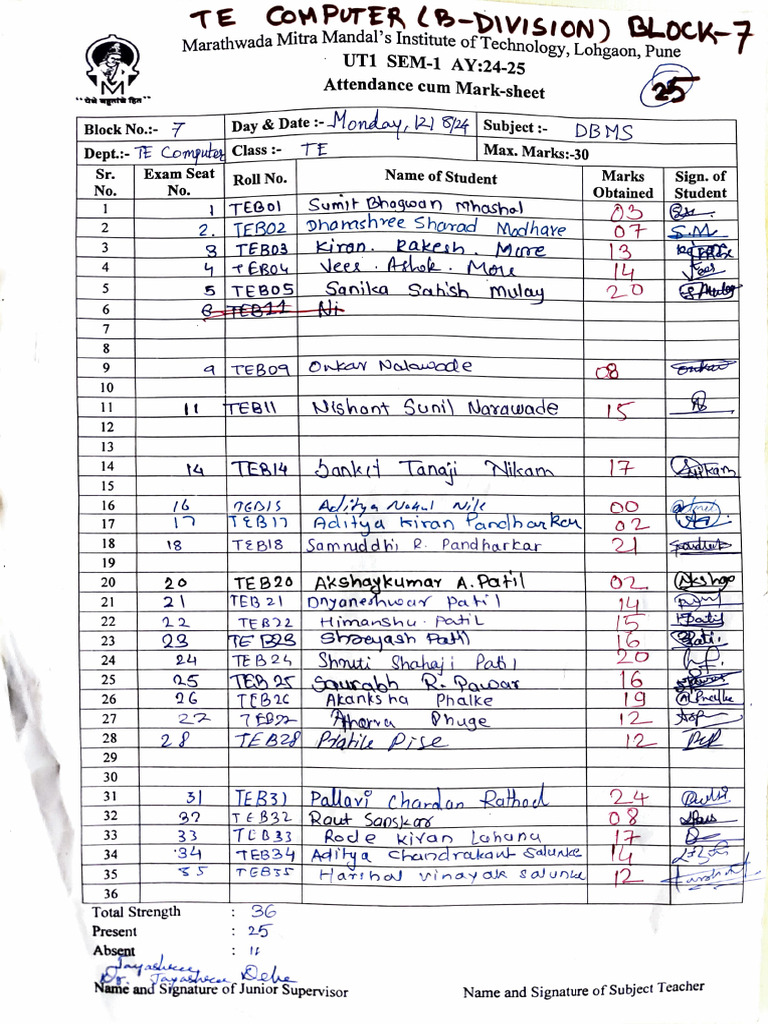 TE COMPUTER (B-DIVISION) BLOCK-7
Marathwada Mitra Mandal's Institute of Technology, Lohgaon, Pune
UT1 SEM-1 AY:24-25
Attendance cum Mark-sheet
25
"येथे बहुतांचे हित"
Block No.:- 7 Day & Date :- Monday, 12/8/24 Subject :- DBMS
Dept.:- TE Computer Class :- TE Max. Marks:-30
Sr. No. Exam Seat No. Roll No. Name of Student Marks Obtained Sign. of Student
1 1 TEB01 Sumit Bhagwan Mhaskal 03
2 2. TEB02 Dhanashree Sharad Modhave 07 S.M
3 3 TEB03 Kiran. Rakesh. More 13
4 4 TEB04 Veer. Ashok. More 14
5 5 TEB05 Sanika Satish Mulay 20
6 6 TEB11 Ni
7
8
9 9 TEB09 Onkar Nalawade 08
10
11 11 TEB11 Nishant Sunil Narawade 15
12
13
14 14 TEB14 Sanket Tanaji Nikam 17
15
16 16 TEB15 Aditya Nakul Nile 00
17 17 TEB17 Aditya Kiran Pandharkar 02
18 18 TEB18 Samruddhi R. Pandharkar 21
19
20 20 TEB20 Akshaykumar A. Patil 02
21 21 TEB21 Dnyaneshwar Patil 14
22 22 TEB22 Himanshu Patil 15 Patil
23 23 TEB23 Shreyash Patil 16
24 24 TEB24 Shruti Shahaji Patil 20
25 25 TEB25 Saurabh R. Pawar 16
26 26 TEB26 Akanksha Phalke 19
27 27 TEB27 Atharva Phuge 12
28 28 TEB28 Pratik Pise 12
29
30
31 31 TEB31 Pallavi Chandan Rathod 24
32 32 TEB32 Raut Sanskar 08
33 33 TEB33 Rode Kiran Lahanu 17
34 34 TEB34 Aditya Chandrakant Salunke 14
35 35 TEB35 Harshal Vinayak Salunke 12
36
Total Strength : 36
Present : 25
Absent : 11
Dr. Jayashree
Name and Signature of Junior Supervisor Name and Signature of Subject Teacher